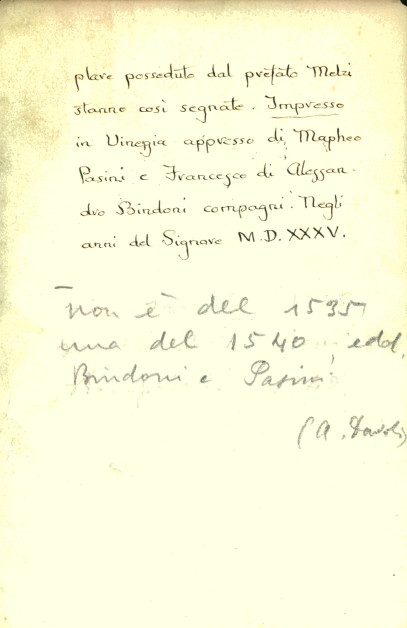 plare posseduto dal prefato Melzi
stanno così segnate. Impresso
in Vinezia appresso di Mapheo
Pasini e Francesco di Alessan-
dro Bindoni compagni. Negli
anni del Signore M.D.XXXV.
non è del 1535
ma del 1540, edd.
Bindoni e Pasini
(A. Davoli)